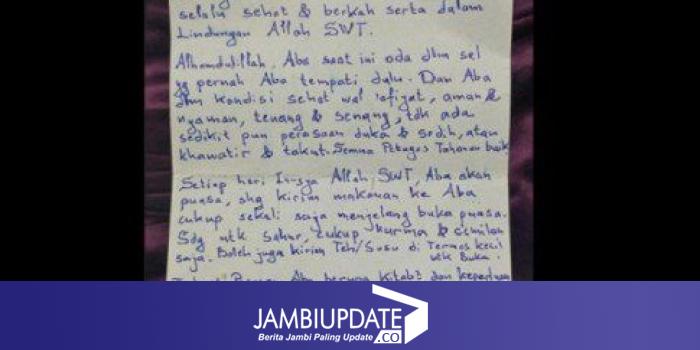 selalu sehat & berkah serta dalam
Lindungan Allah SWT.
Alhamdulillah. Aba saat ini ada dlm sel
yg pernah Aba tempati dulu. Dan Aba
dlm kondisi sehat wal 'afiyat, aman &
nyaman, tenang & senang, tdk ada
sedikit pun perasaan duka & sedih, atau
khawatir & takut. Semua Petugas Tahanan baik
Setiap hari In-sya Allah SWT, Aba akan
puasa, shg kirim makanan ke Aba
cukup sekali saja menjelang buka puasa.
Sdg utk Sahur, cukup kurma & cemilan
saja. Boleh juga kirim Teh/Susu di Termos kecil
utk Buka.
Aba berupa Kitab2 dan keperluan
JAMBIUPDATE
.CO
Berita Jambi Paling Update